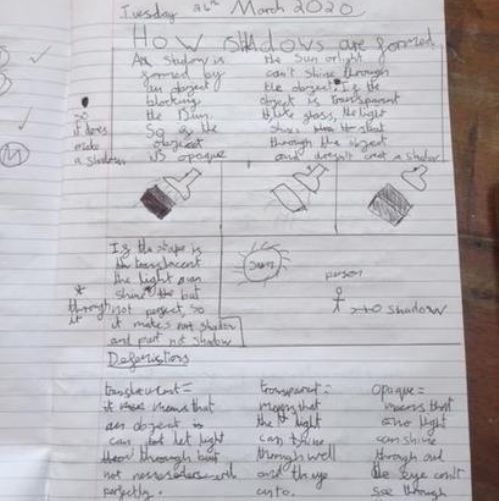 Tuesday 24th March 2020
How shadows are formed
An shadow is
formed by
an object
blocking
the Sun.
So if the
object
is opaque
so
it does
make
a shadow
the Sun or light
can't shine through
the object. If the
object is transparent
like glass, the light
through the object
and doesn't creat a shadow
If the shape is
translucent
the light can
shine but
* through it
not perfect, so
it makes part shadow
and part not shadow
Sun
person
shadow
Definitions
translucent =
it means that
an object is
can let light
through but
not
perfectly.
transparent =
means that
the light
can shine
through well
and the eye
can to.
opaque =
means that
no light
can shine
through and
the eye can't
see through
M